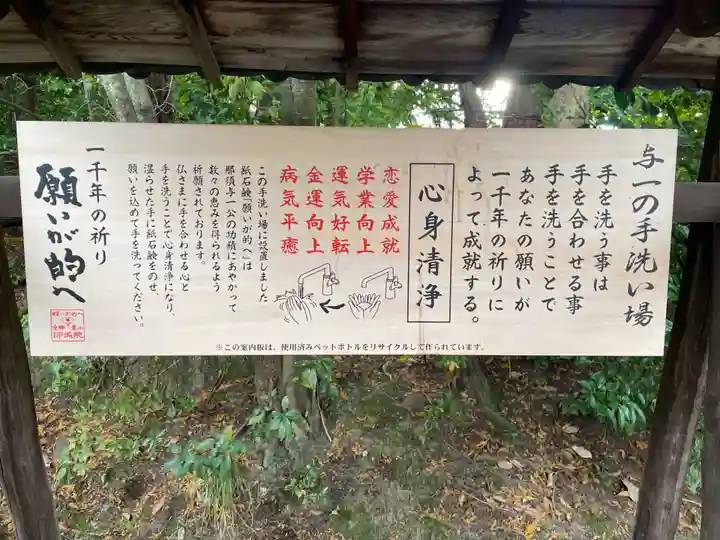 与一の手洗い場
手を洗う事は
手を合わせる事
手を洗うことで
あなたの願いが
一千年の祈りに
よって成就する。
心身清浄
恋愛成就
学業向上
運気好転
金運向上
病気平癒
この手洗い場に設置しました
紙石鹸「願いが的へ」は
那須与一公の功績にあやかって
数々の恵みを得られるよう
祈願されております。
仏さまに手を合わせる心と
手を洗うことで心身清浄になり、
湿らせた手に紙石鹸をのせ、
願いを込めて手を洗ってください。
一千年の祈り
願いが的へ
願いが的へ
即成院
※この案内板は、使用済みペットボトルをリサイクルして作られています。